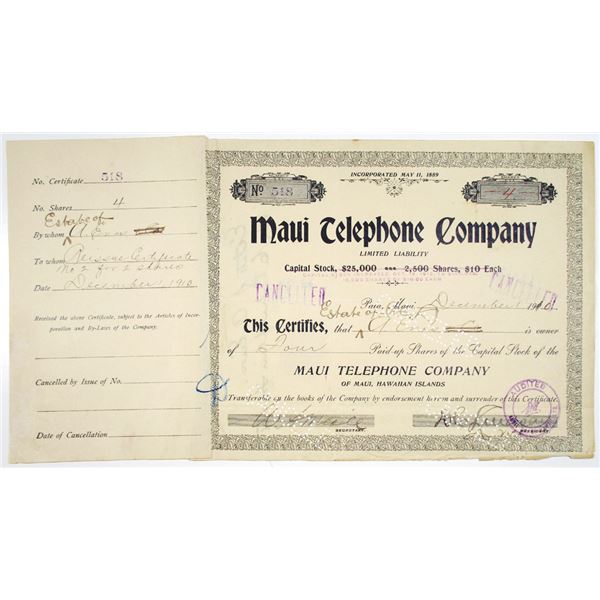 No. Certificate 518
No. Shares 4
Estate of
By whom A. Enos
To whom Reissue Certificate
No 2 for 2 shares
Date December 1, 1910
Received the above Certificate, subject to the Articles of Incor-
poration and By-Laws of the Company.
Cancelled by Issue of No.
Date of Cancellation
INCORPORATED MAY 11, 1889
No 518
4
Maui Telephone Company
LIMITED LIABILITY
Capital Stock, $25,000 2,500 Shares, $10 Each
CANCELLED
CANCELLED
Paia, Maui, December 1 1910
Estate of
This Certifies, that A Enos is owner
of Four Paid-up Shares of the Capital Stock of the
MAUI TELEPHONE COMPANY
OF MAUI, HAWAIIAN ISLANDS
Transferable on the books of the Company by endorsement hereon and surrender of this Certificate.
AUDITED
SECRETARY.
PRESIDENT.